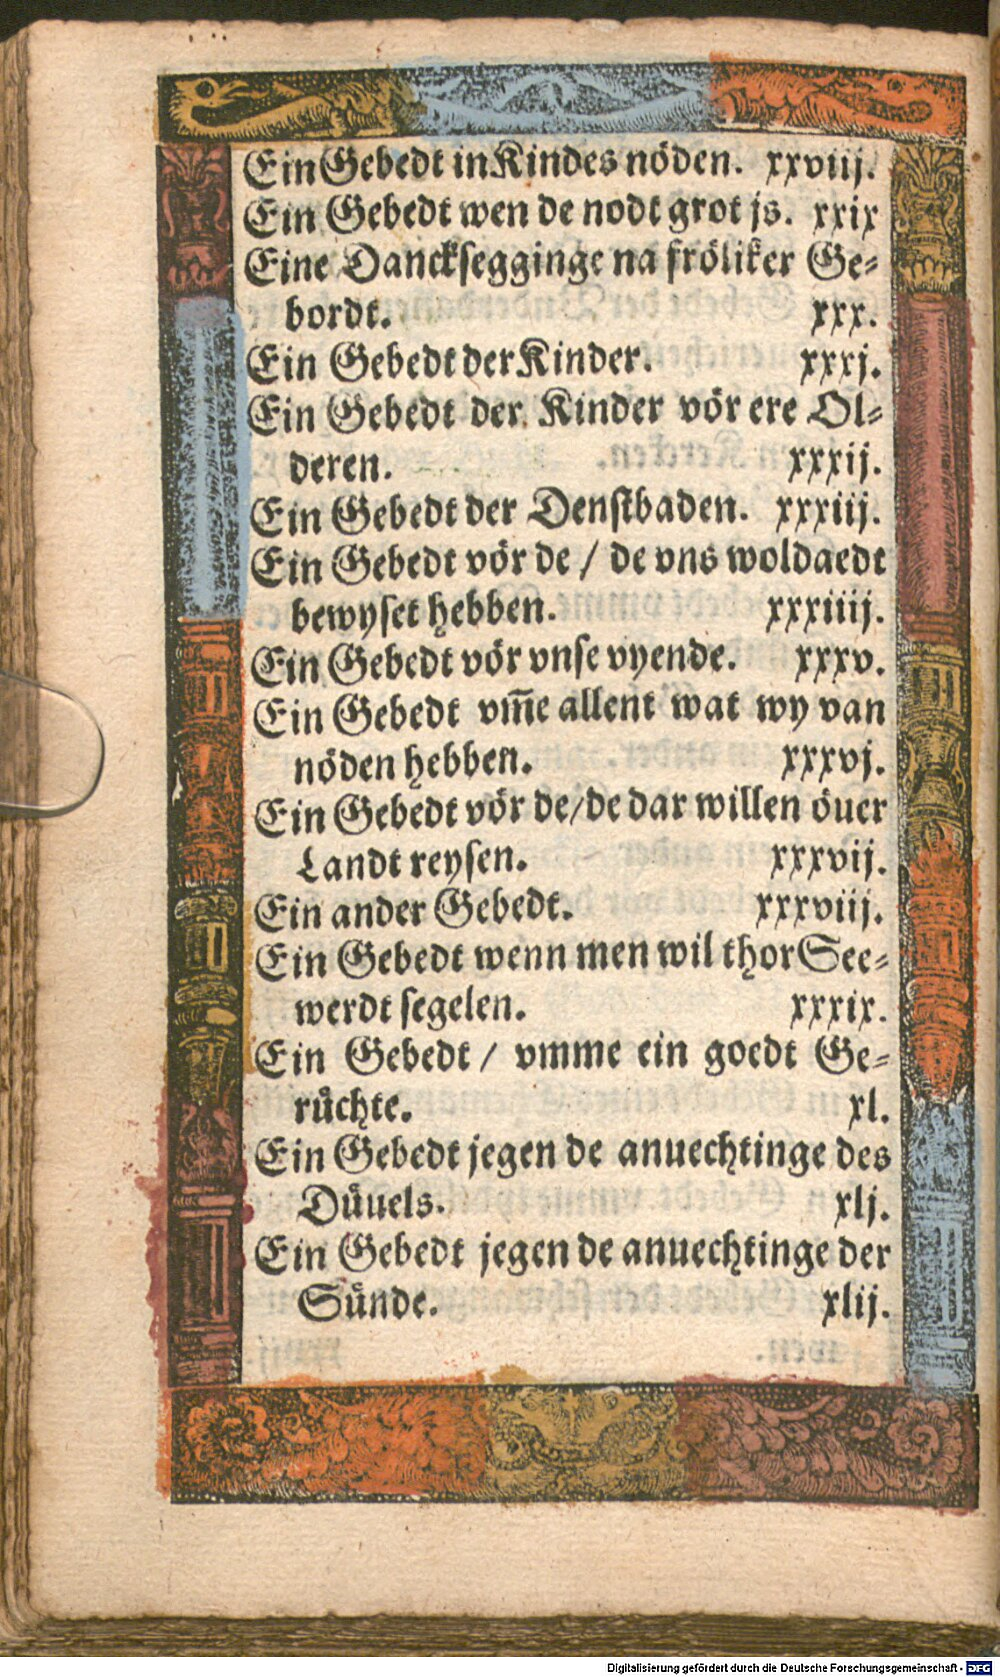 Ein Gebedt in Kindes nöden. xxviij.
Ein Gebedt wen de nodt grot js. xxix
Eine Danckſegginge na fröliker Ge⸗
bordt. xxx.
Ein Gebedt der Kinder. xxxj.
Ein Gebedt der Kinder vör ere Ol⸗
deren. xxxij.
Ein Gebedt der Denſtbaden. xxxiij.
Ein Gebedt vör de / de vns woldaedt
bewyſet hebben. xxxiiij.
Ein Gebedt vör vnſe vyende. xxxv.
Ein Gebedt vm̄e allent wat wy van
nöden hebben. xxxvj.
Ein Gebedt vör de/de dar willen öuer
Landt reyſen. xxxvij.
Ein ander Gebedt. xxxviij.
Ein Gebedt wenn men wil thor See⸗
werdt ſegelen. xxxix.
Ein Gebedt / vmme ein goedt Ge⸗
rüchte. xl.
Ein Gebedt jegen de anuechtinge des
Düuels. xlj.
Ein Gebedt jegen de anuechtinge der
Sünde. xlij.
Digitalisierung gefördert durch die Deutsche Forschungsgemeinschaft - DFG